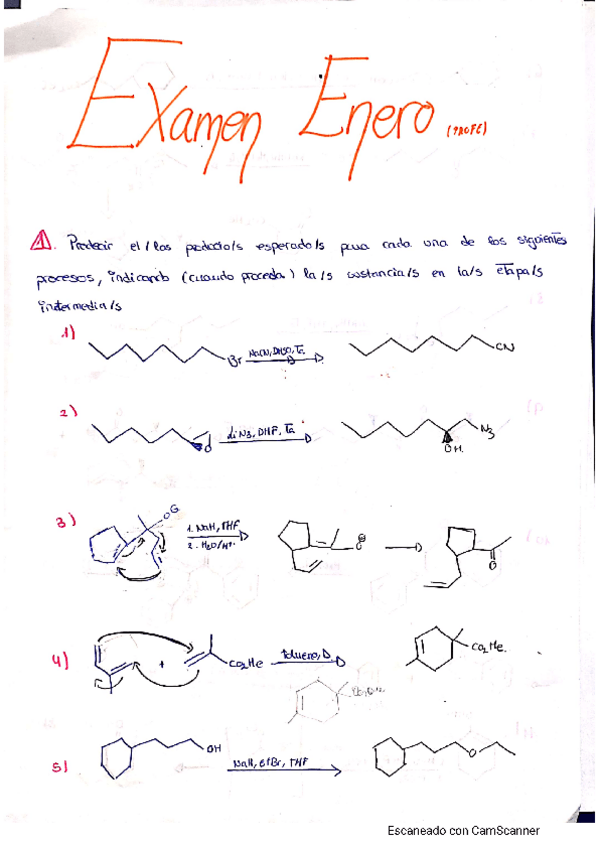 Examen Enero (PROFE)
1. Predecir el/los producto/s esperado/s para cada una de los siguientes
procesos, indicando (cuando proceda) la/s sustancia/s en la/s etapa/s
intermedia/s
1)
Br NaCN, DMSO, Ta CN
2)
O LiN3, DMF, Ta N3
OH
3)
1. NaH, THF
2. H2O/H+
O
4) + CO2Me tolueno, Δ CO2Me.
5) OH NaH, EtBr, THF O
Escaneado con CamScanner